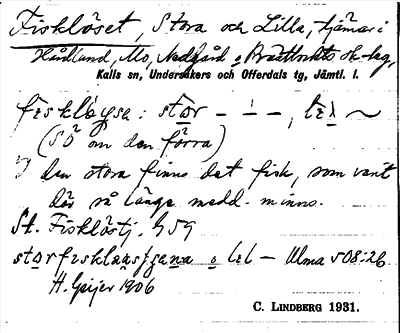 Fisklöset, Stora och Lilla, tjärnar i
Hårdland, Mo, Nedgård o Bratthåts sk-lag,
Kalls sn, Undersåkers och Offerdals tg, Jämtl. l.
stor - ' -
(SÖ om den förra)
I den stora finns det fisk, som varit
där så länge medd. minns.
St. Fisklöstj. G 59
o lɩl - Ulma 508:26
H. Geijer 1906
C. LINDBERG 1931.